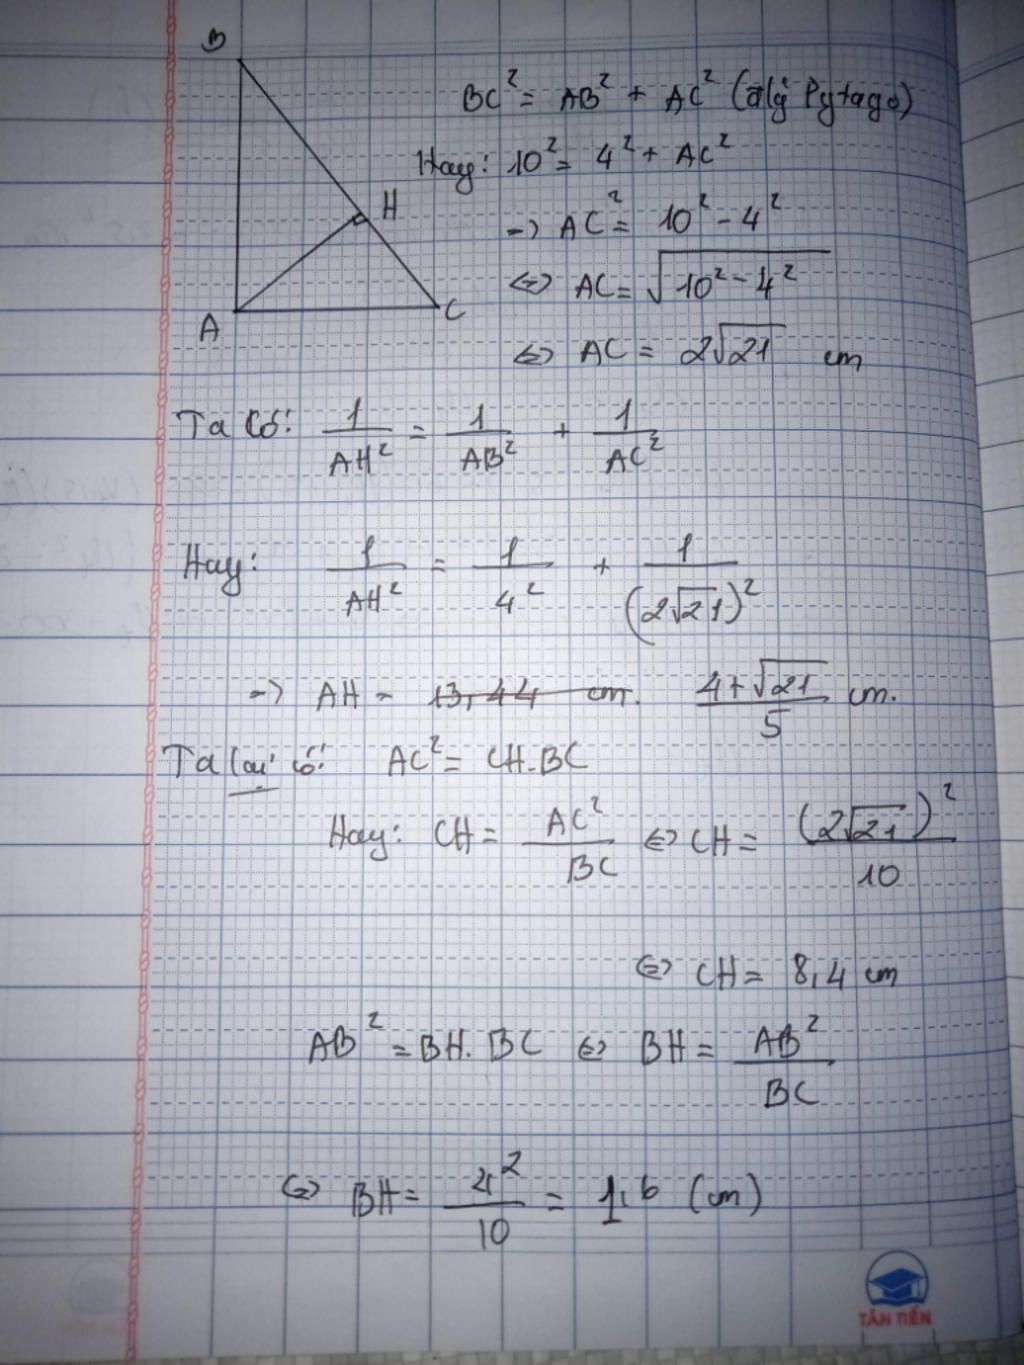 B
BC² = AB² + AC² (đlý Pytago)
Hay: 10² = 4² + AC²
H
→ AC² = 10² - 4²
⇔ AC = √10² - 4²
A
C
⇔ AC = 2√21 cm
Ta có: 1/AH² = 1/AB² + 1/AC²
Hay: 1/AH² = 1/4² + 1/(2√21)²
→ AH = 13,44 cm. 4+√21/5 cm.
Ta lại có: AC² = CH.BC
Hay: CH = AC²/BC ⇔ CH = (2√21)²/10
⇔ CH = 8,4 cm
AB² = BH.BC ⇔ BH = AB²/BC
⇔ BH = 4²/10 = 1,6 (cm)
TÂN TIẾN